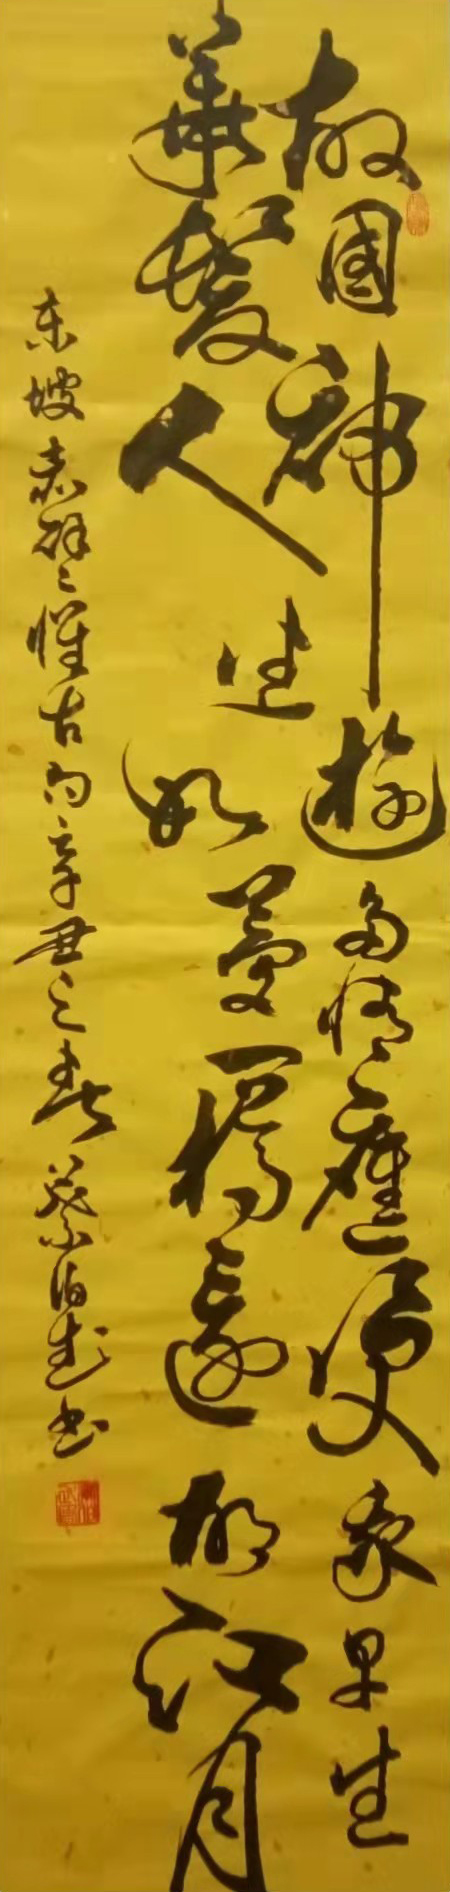 故國神遊多情應我早生
華髮人生如夢一樽還酹江月
东坡赤壁懷古句辛丑之春蔡书